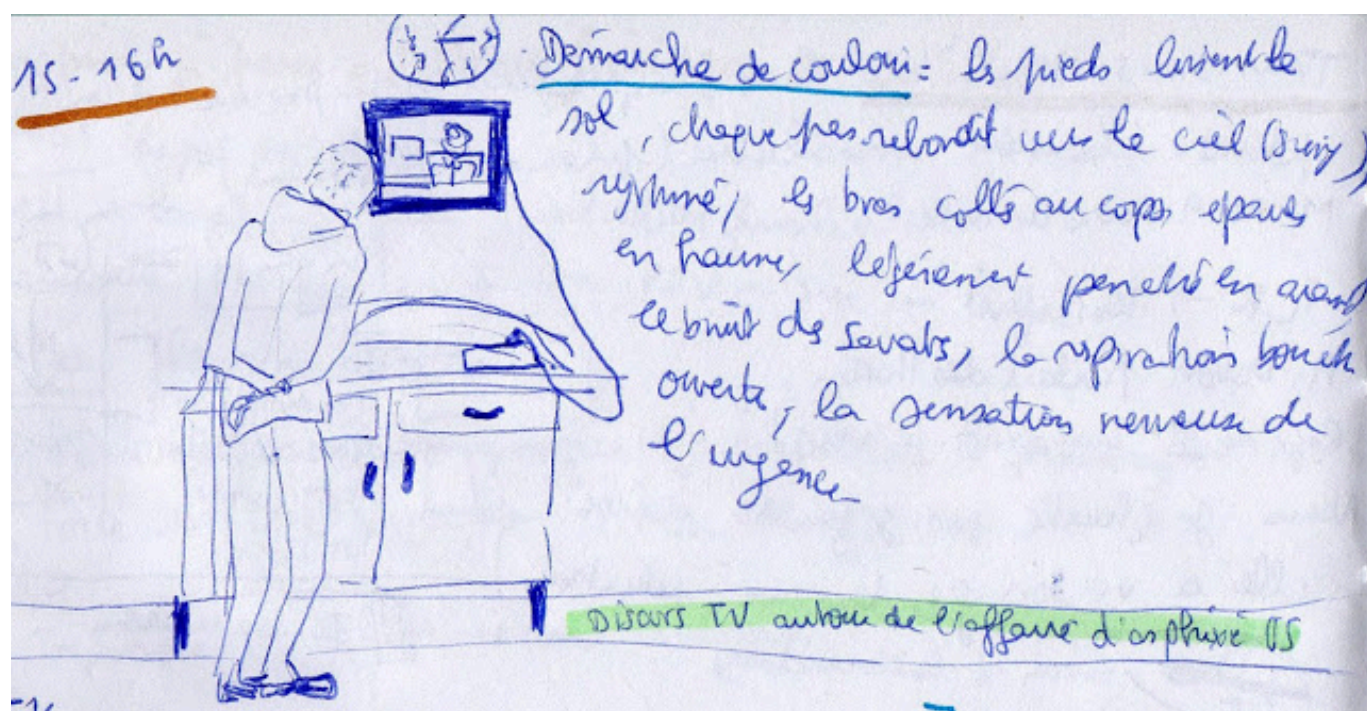 15-16h
Démarche de couloir: les pieds
sol, chaque pas rebondit vers le ciel (swing)
rythmé, les bras collés au corps epaules
en légèrement penché en avant,
le bruit des savates, la respiration bouche
ouverte, la sensation nerveuse de
l'urgence
Discours TV autour de l'affaire d'asphixie